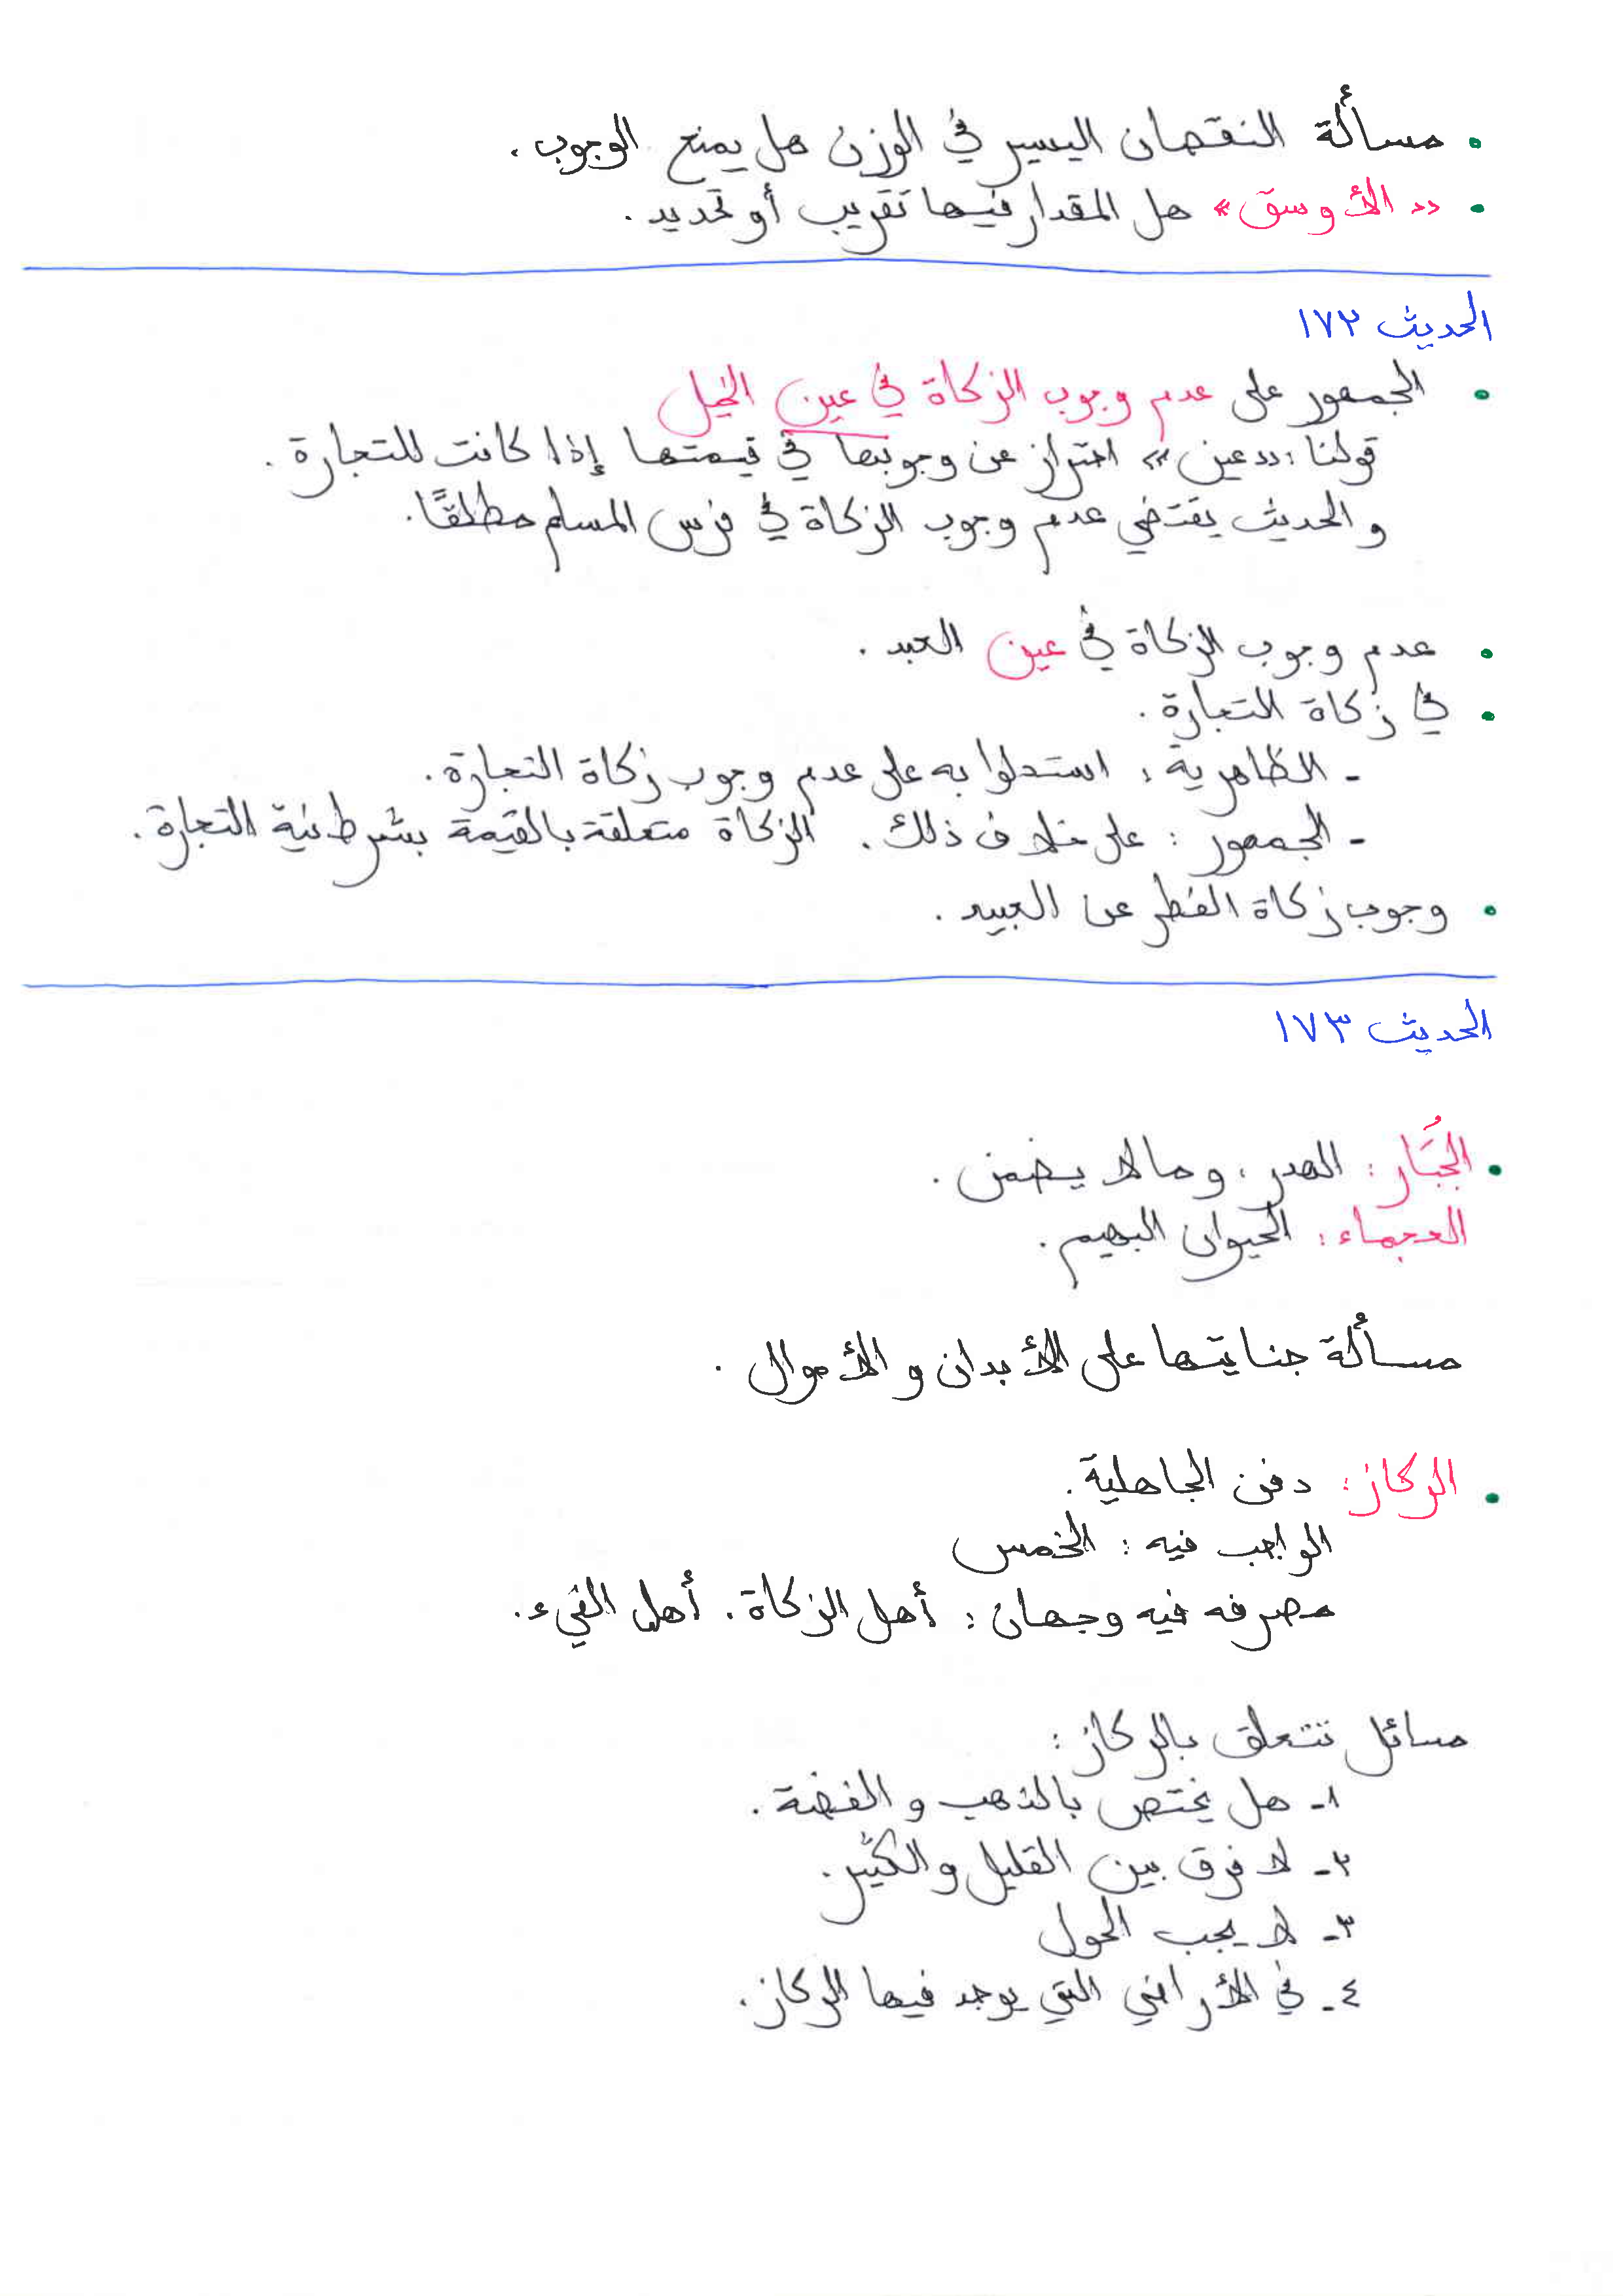 • مسألة النقصان اليسير في الوزن هل يمنع الوجوب.
• «الأوسق» هل المقدار فيها تقريب أو تحديد.
الحديث ١٧٢
• الجمهور على عدم وجوب الزكاة في عين الخيل
قولنا: «عين» احتراز عن وجوبها في قيمتها إذا كانت للتجارة.
والحديث يقتضي عدم وجوب الزكاة في فرس المسلم مطلقًا.
• عدم وجوب الزكاة في عين العبد.
• في زكاة التجارة.
- الظاهرية: استدلوا به على عدم وجوب زكاة التجارة.
- الجمهور: على خلاف ذلك. الزكاة متعلقة بالقيمة بشرط نية التجارة.
• وجوب زكاة الفطر عن العبيد.
الحديث ١٧٣
• الجُبَار: الهدر، وما لا يضمن.
العجماء: الحيوان البهيم.
مسألة جنايتها على الأبدان والأموال.
• الركاز: دفن الجاهلية.
الواجب فيه: الخمس
مصرفه فيه وجهان: أهل الزكاة. أهل الفيء.
مسائل تتعلق بالركاز:
١- هل يختص بالذهب والفضة.
٢- لا فرق بين القليل والكثير.
٣- لا يجب الحول
٤- في الأراضي التي يوجد فيها الركاز.